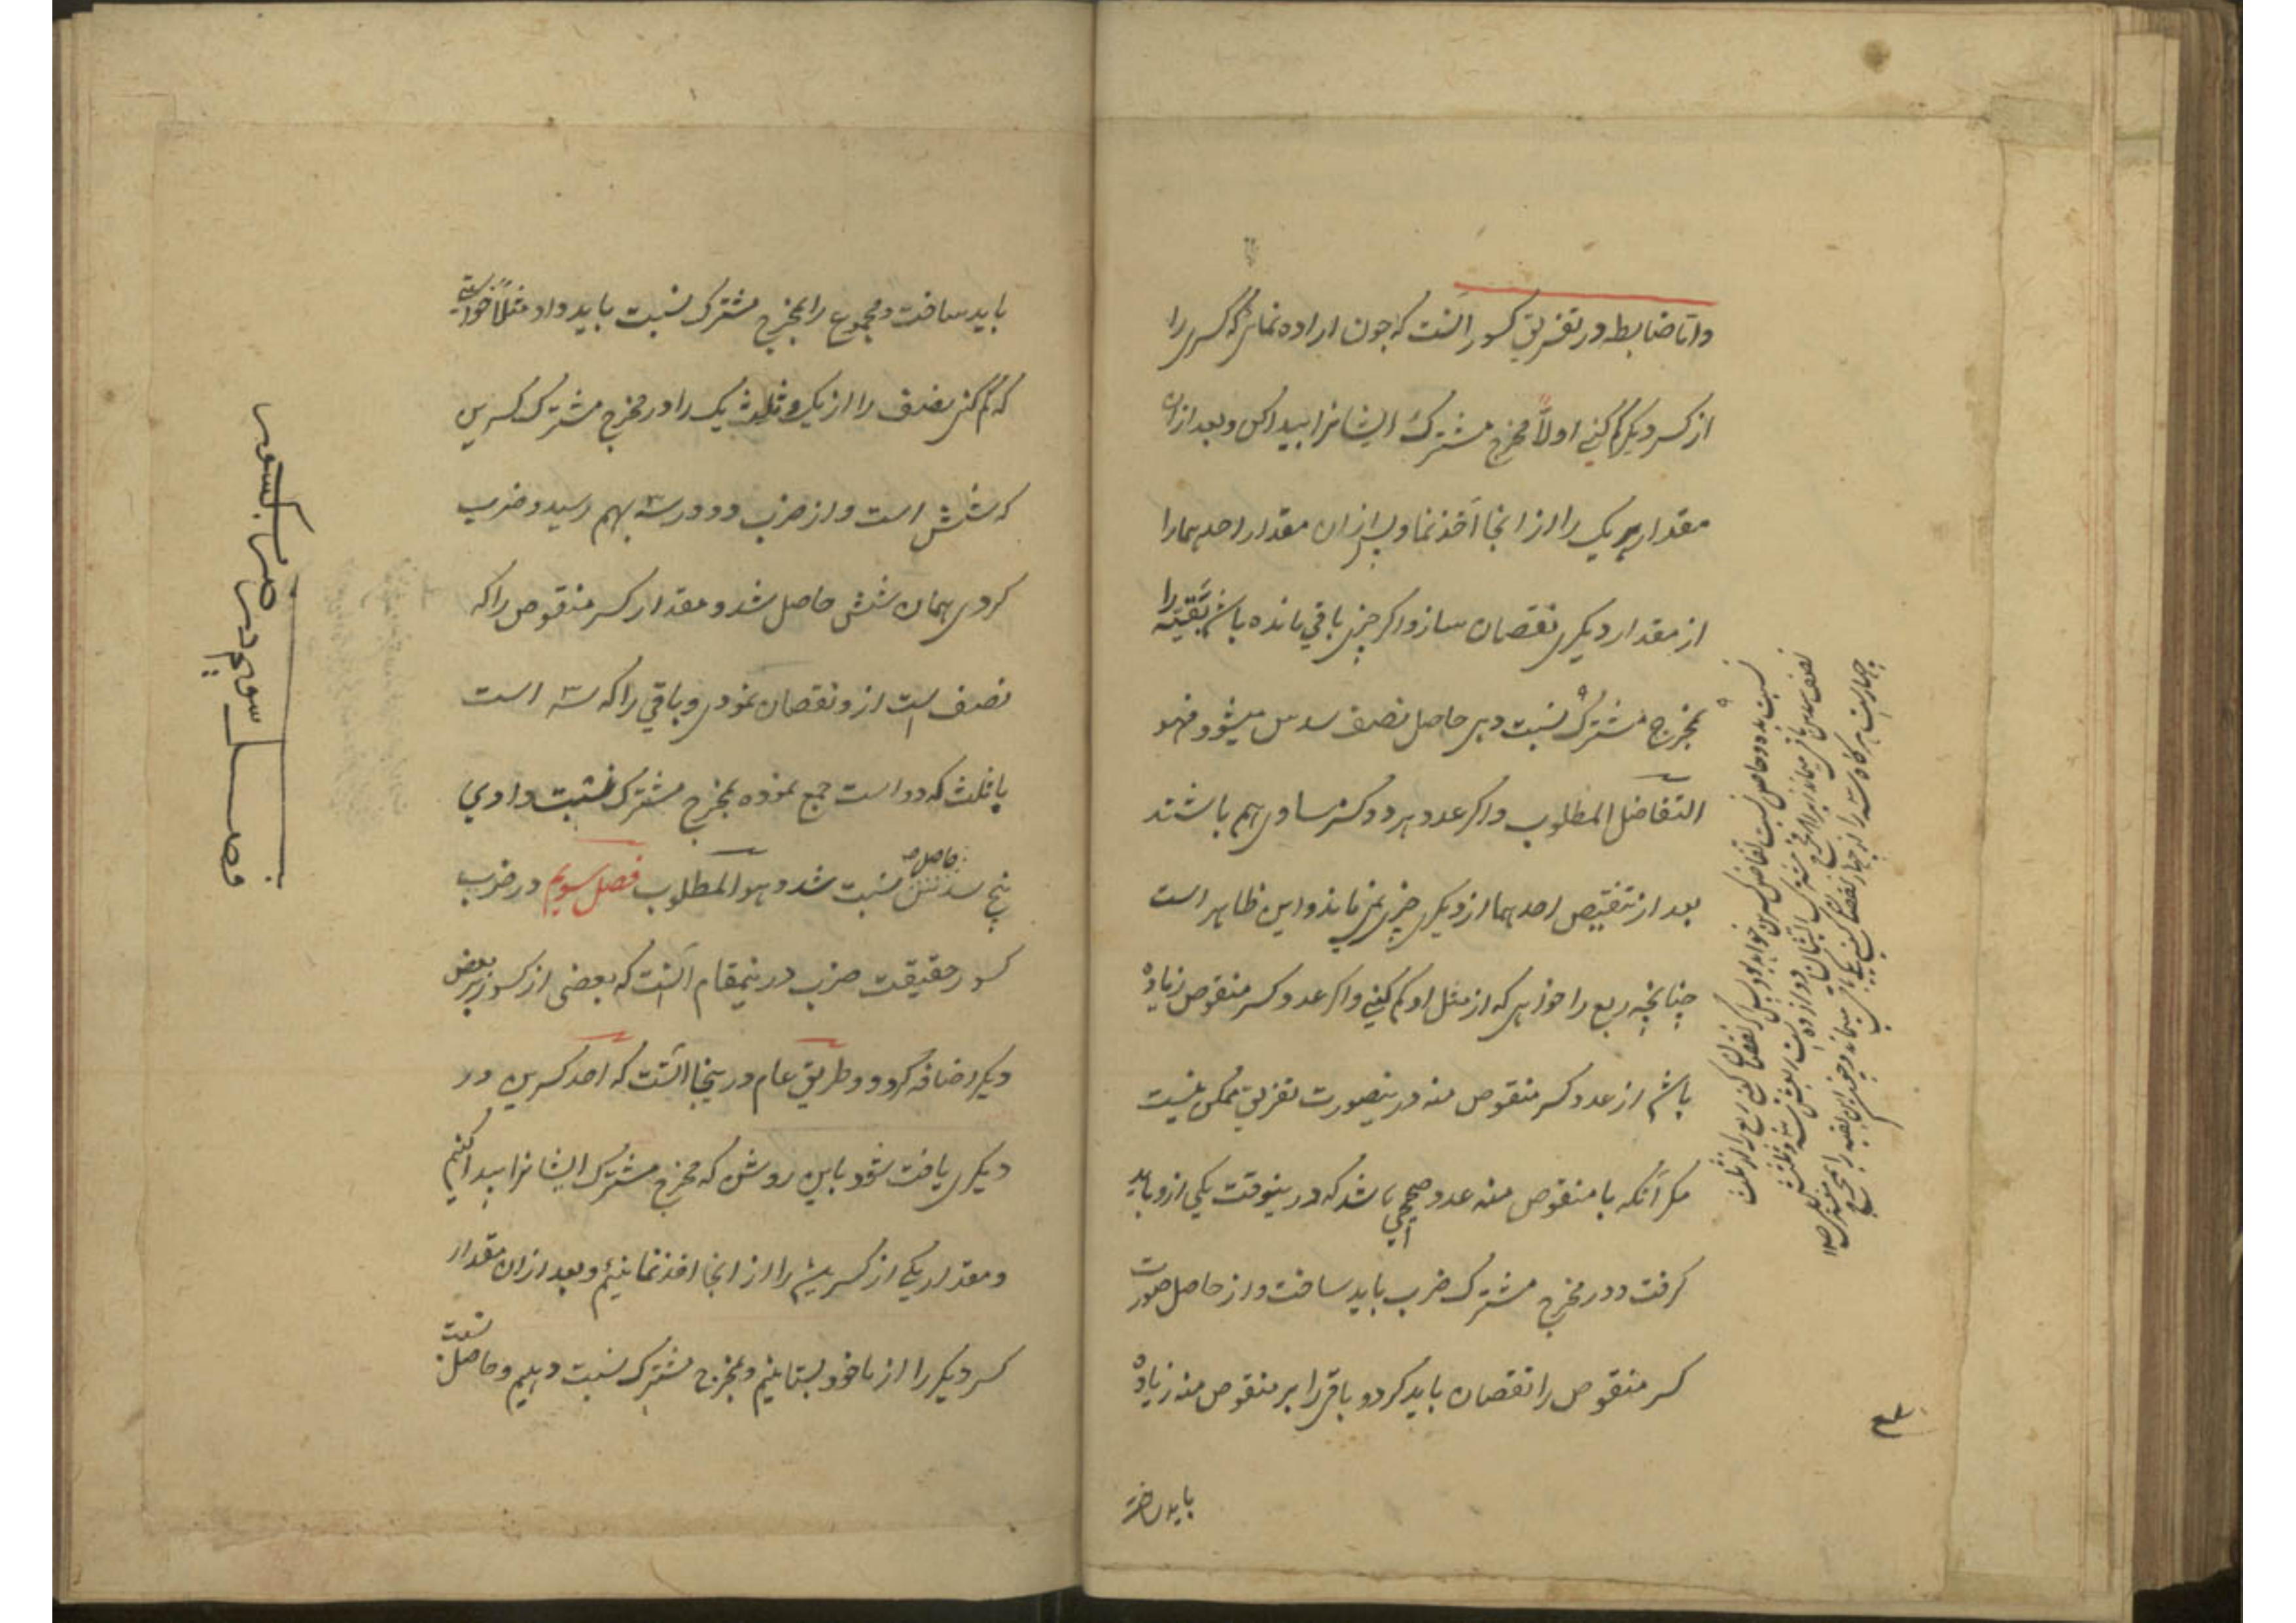 واما ضابطه در تفریق کسور آنست که چون اراده نمائی که کسری را
از کسر دیگر کم کنی اولاً مخرج مشترک ایشانرا پیدا کن و بعد ازان
مقدار هر یک را از انجا اخذ نما و پس ازان مقدار احدهما را
از مقدار دیگری نقصان ساز و اگر چیزی باقی مانده باشد بقیّه را
بمخرج مشترک نسبت دهی حاصل نصف سدس میشود فهو
التفاضل المطلوب و اگر عدد هر دو کسر مساوی هم باشند
بعد از تنقیص احدهما از دیگری چیزی نمی ماند و این ظاهر است
چنانچه ربع را خواهی که از مثل او کم کنی و اگر عدد کسر منقوص زیاده
باشد از عدد کسر منقوص منه درینصورت تفریق ممکن نیست
مکر آنکه با منقوص منه عدد صحیحی باشد که درینوقت یکی ازو باید
گرفت و در مخرج مشترک ضرب باید ساخت و از حاصل صورت
کسر منقوص را نقصان باید کرد و باقی را بر منقوص منه زیاده
باید ساخت
نسبت بده و حاصل نسبت تفاضل کسرین خواهد بود پس اگر نقصان کنی ربع را از ثلث
نصف سدس باقی میماند زیرا که مخرج مشترک ایشان دوازده است ربعش سه و ثلثش
چهار است هرگاه سه را از چهار نقصان کنی یکی باقی میماند و چون این بقیه را بمخرج
باید ساخت و مجموع را بمخرج مشترک نسبت باید داد مثلاً خواستی
که کم کنی نصف را از یک و ثلث یک را در مخرج مشترک کسرین
که شش است و از ضرب دو در سه بهم رسید و ضرب
کردی همان شش حاصل شد و مقدار کسر منقوص را که
نصف است ازو نقصان نمودی و باقی را که سه است
با ثلث که دو است جمع نموده بمخرج مشترک نسبت دادی
پنج سدس حاصل نسبت شد و هو المطلوب فصل سویم در ضرب
کسور حقیقت ضرب درینمقام آنست که بعضی از کسور بر بعض
دیگر اضافه کردد و طریق عام درینجا آنست که احد کسرین در
دیگری یافت شود باین روش که مخرج مشترک ایشانرا پیدا کنیم
و مقدار یکی از کسرین را از انجا اخذ نمائیم و بعد ازان مقدار
کسر دیگر را از ماخوذ بستانیم و بمخرج مشترک نسبت دهیم و حاصل نسبت
فصل سویم در ضرب کسور